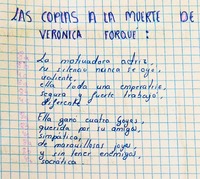 LAS COPLAS A LA MUERTE DE
VERONICA FORQUE :
La motivadora actriz,
tu silencio nunca se oye,
valiente,
ella toda una emperatriz,
segura y fuerte trabajó,
diferente.
Ella gana cuatro Goyas,
querida por su amigos,
simpática,
de maravillosas joyas,
y sin tener enemigos,
socrática.